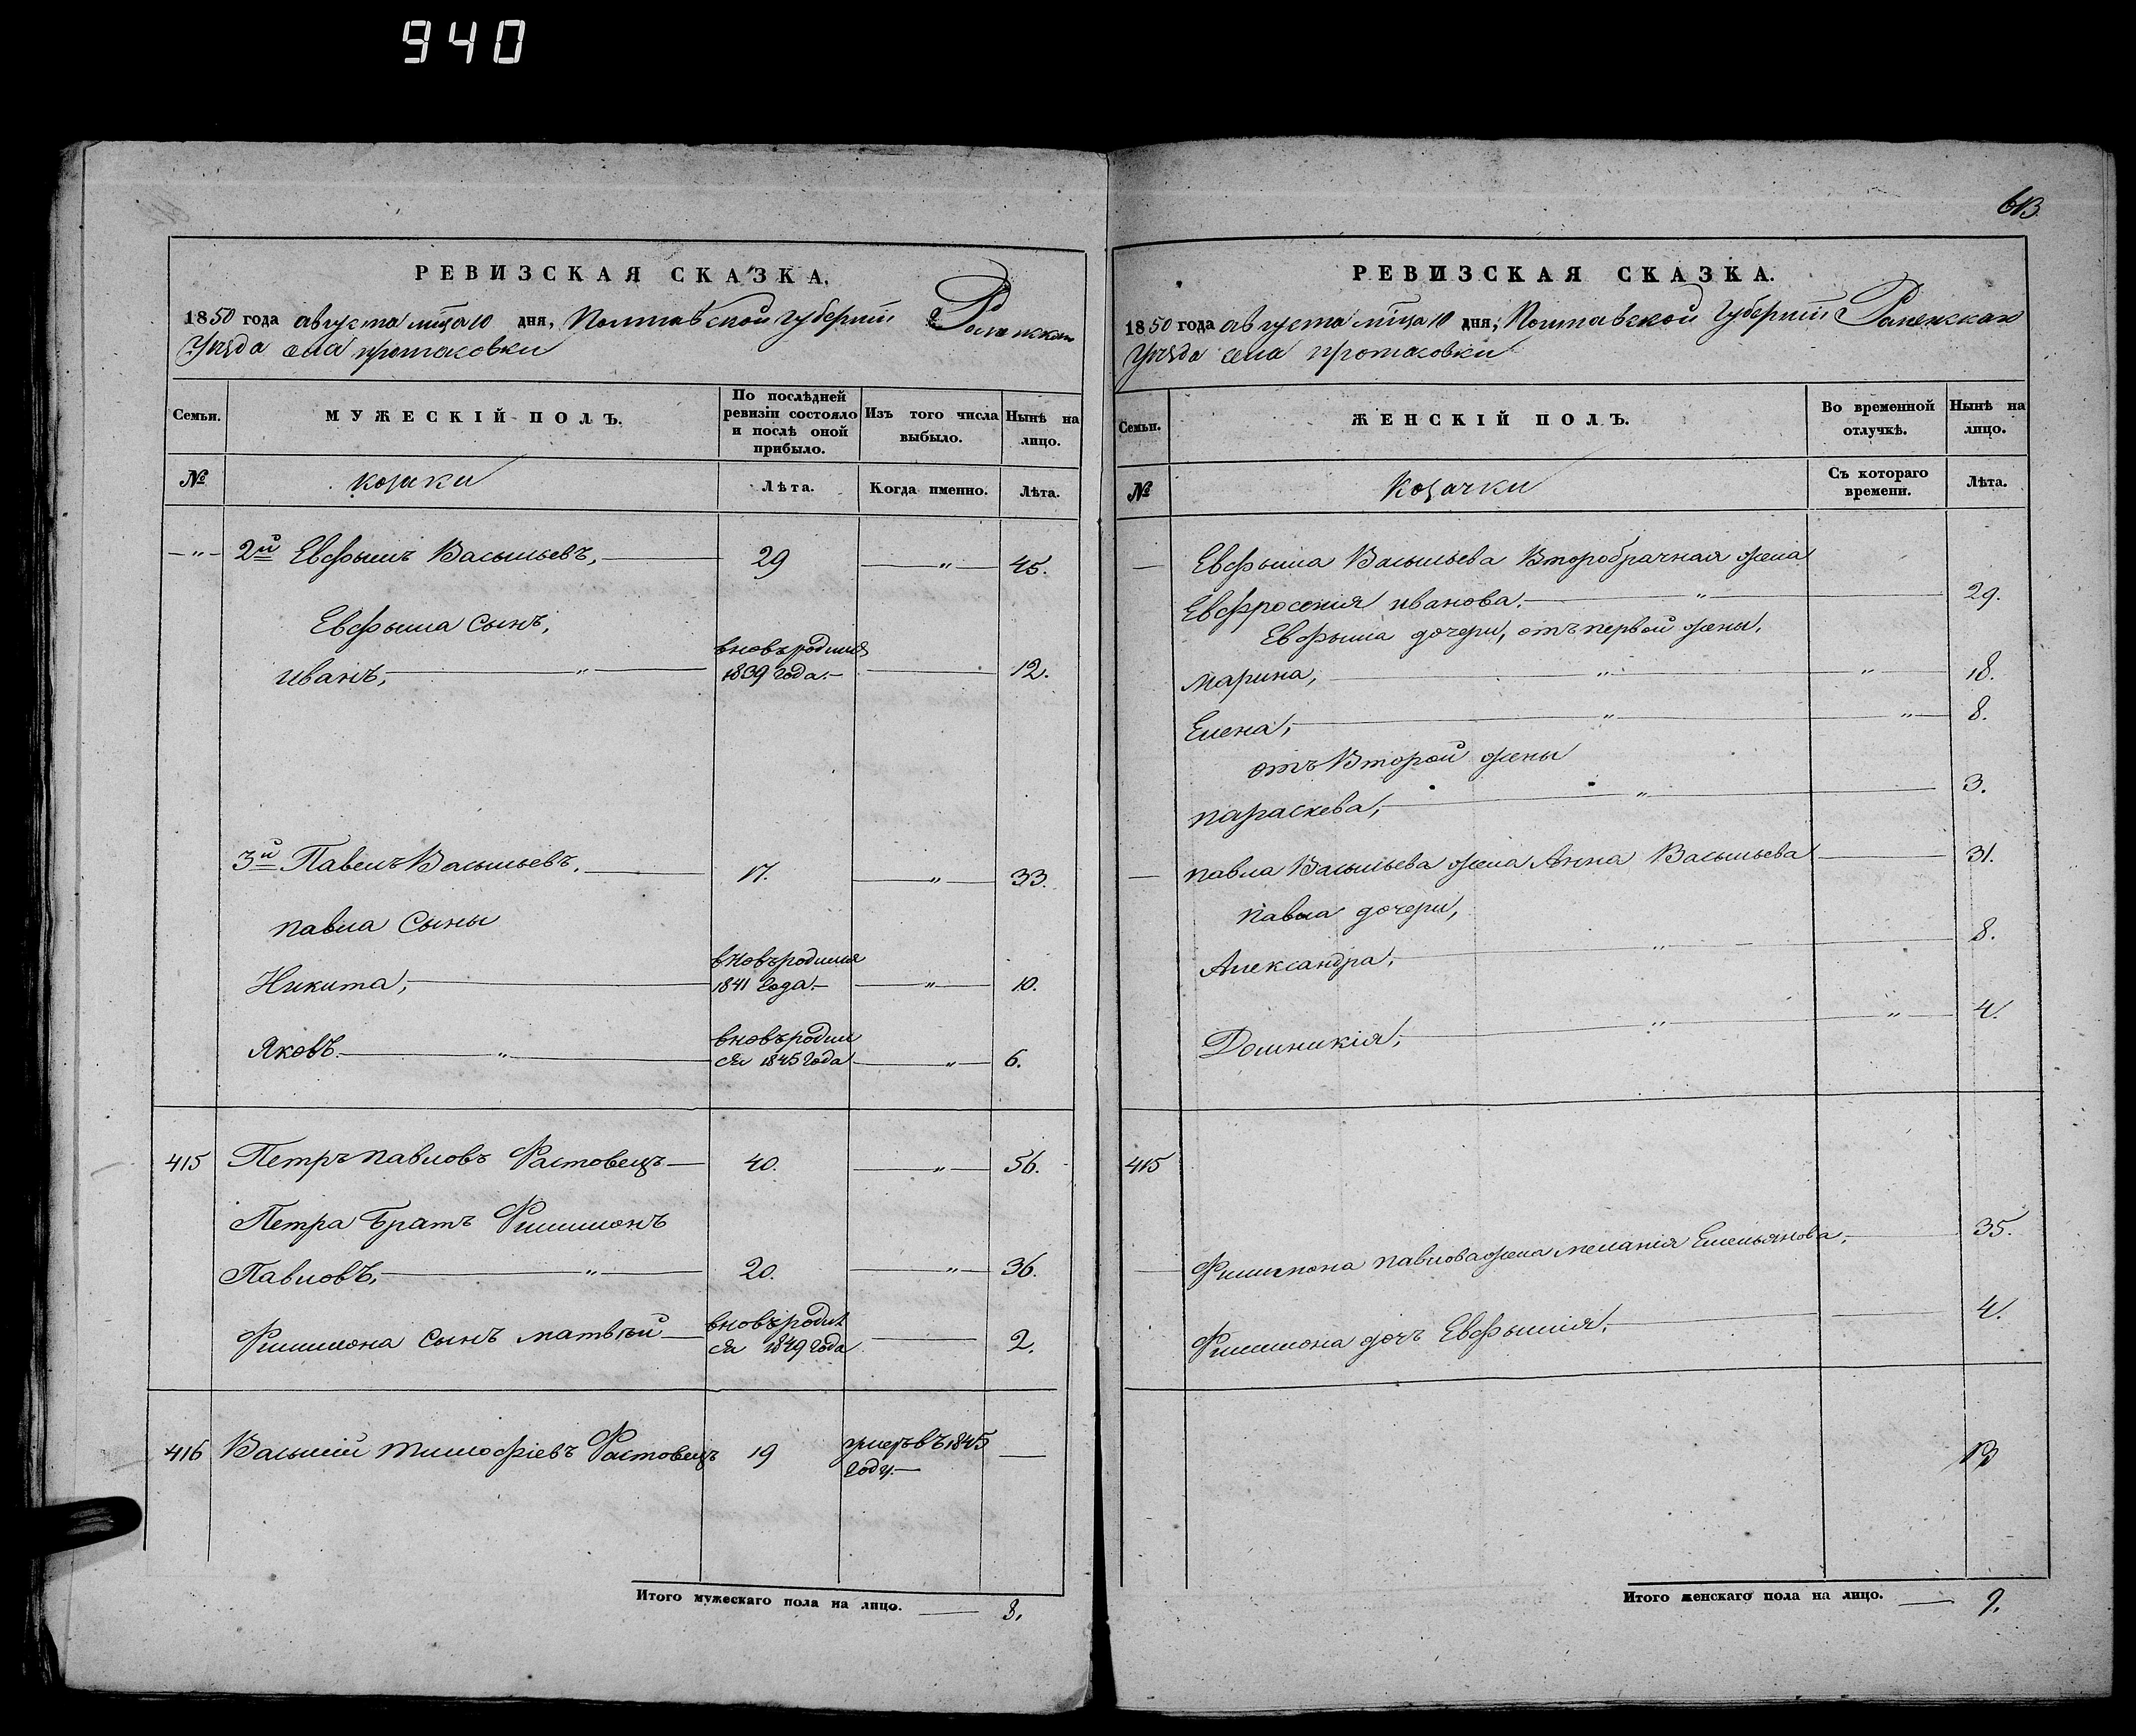 940
РЕВИЗСКАЯ СКАЗКА.
1850 года августа мѣца 10 дня, Полтавской губерніи Роменскаго
Уѣзда села Протасовки
Семьи.
МУЖЕСКІЙ ПОЛЪ.
По послѣдней ревизіи состояло и послѣ оной прибыло.
Изъ того числа выбыло.
Нынѣ на лицо.
№
козаки
Лѣта.
Когда именно.
Лѣта.
— " — 2й Евфымъ Васыльевъ, 29 " 45.
Евфыма сынъ,
Иванъ, " вновь родился 1839 года. 12.
3й Павелъ Васыльевъ. 17. " 33.
Павла сыны
Никита, вновь родился 1841 года. " 10.
Яковъ. " вновь родился 1845 года " 6.
415 Петръ Павловъ Фастовецъ 40. " 56.
Петра братъ Филимонъ
Павловъ, " 20. " 36.
Филимона сынъ Матвѣй вновь родился 1849 года 2.
416 Васылій Тимофіевъ Фастовецъ 19 умеръ въ 1845 году. —
Итого мужескаго пола на лицо. — 8.
613
РЕВИЗСКАЯ СКАЗКА.
1850 года августа мѣца 10 дня, Полтавской губерніи Роменскаго
Уѣзда села Протасовки
Семьи.
ЖЕНСКІЙ ПОЛЪ.
Во временной отлучкѣ.
Нынѣ на лицо.
№
Козачки
Съ котораго времени.
Лѣта.
— Евфыма Васыльева второбрачная жена
Евфросенія Иванова. " 29.
Евфыма дочери, отъ первой жены,
Марина, " " 18.
Елена, " " 8.
отъ второй жены
Параскева, " 3.
— Павла Васыльева жена Анна Васыльева 31.
Павла дочери,
Александра, " 8.
Домникія, " " 4.
415
Филимона Павлова жена Меланія Емельянова, 35.
Филимона дочъ Евфымія, 4.
Итого женскаго пола на лицо. — 9.